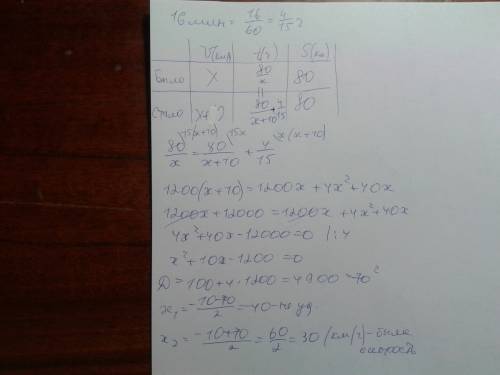 16 мин = 16/60 = 4/15 г
V(км/ч) t(ч) S(км)
Было x 80/x 80
Стало x+ 80/(x+10) + 4/15 80
15(x+10) 15x x(x+10)
80/x = 80/(x+10) + 4/15
1200(x+10) = 1200x + 4x² + 40x
1200x + 12000 = 1200x + 4x² + 40x
4x² + 40x - 12000 = 0 /:4
x² + 10x - 1200 = 0
D = 100 + 4·1200 = 4900 70²
x₁ = -10-70/2 = -40 - не уд.
x₂ = -10+70/2 = 60/2 = 30 (км/ч) - была
скорость